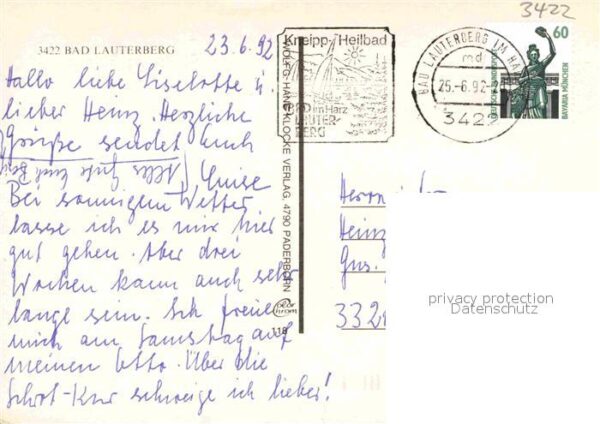 3422
3422 BAD LAUTERBERG
23.6.92
Hallo liebe Liselotte u.
lieber Heinz. Herzliche
Grüße sendet Euch
Luise
Alles Gute Euch
Bei sonnigem Wetter
lasse ich es mir hier
gut gehen. Aber drei
Wochen kann auch sehr
lange sein. Ich freue
mich am Samstag auf
meinen Otto. Über die
Schrot-Kur schweige ich lieber!
Kneipp-Heilbad
BAD im Harz
LAUTER-
BERG
BAD LAUTERBERG IM HA
md
25.-6.92-
3422
60
DEUTSCHE BUNDESPOST
BAVARIA MÜNCHEN
WOLFG. HANS KLOCKE VERLAG, 4790 PADERBORN
118
Herrn
Heinz
Gus.
332
privacy protection
Datenschutz